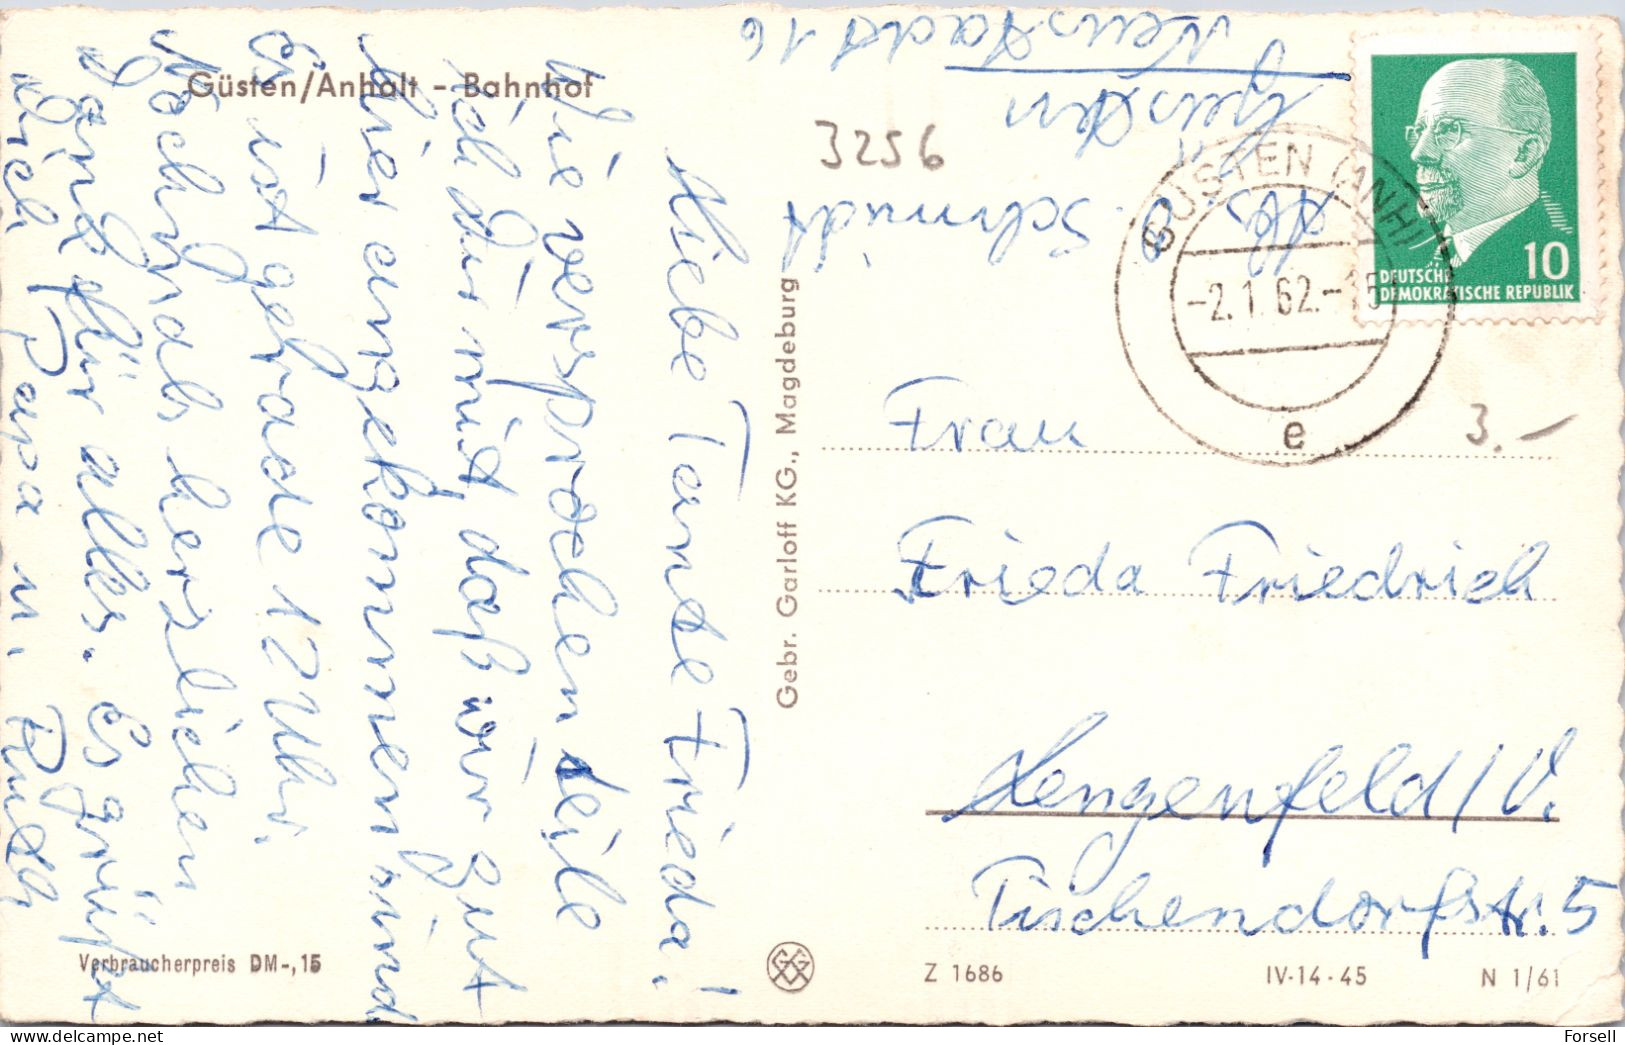 Güsten/Anhalt - Bahnhof
3256
Abs.
Schmidt
Güsten
Neustadt 16
GÜSTEN (ANH)
-2.1.62.-15
e
10
DEUTSCHE
DEMOKRATISCHE REPUBLIK
3.-
Liebe Tante Frieda!
Wie versprochen teile
ich Dir mit, daß wir gut
hier angekommen sind.
Es ist gerade 12 Uhr.
Nochmals herzlichen
Dank für alles. Es grüßt
Dich Papa u. Ruth
Gebr. Garloff KG., Magdeburg
Frau
Frieda Friedrich
Lengenfeld/V.
Tischendorfstr. 5
Verbraucherpreis DM -,15
Z 1686
IV-14-45
N 1/61
Forsell